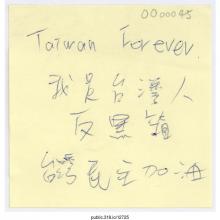 0000045
Taiwan Forever.
我是台灣人
反黑箱
台灣民主加油
public.318.io/12725